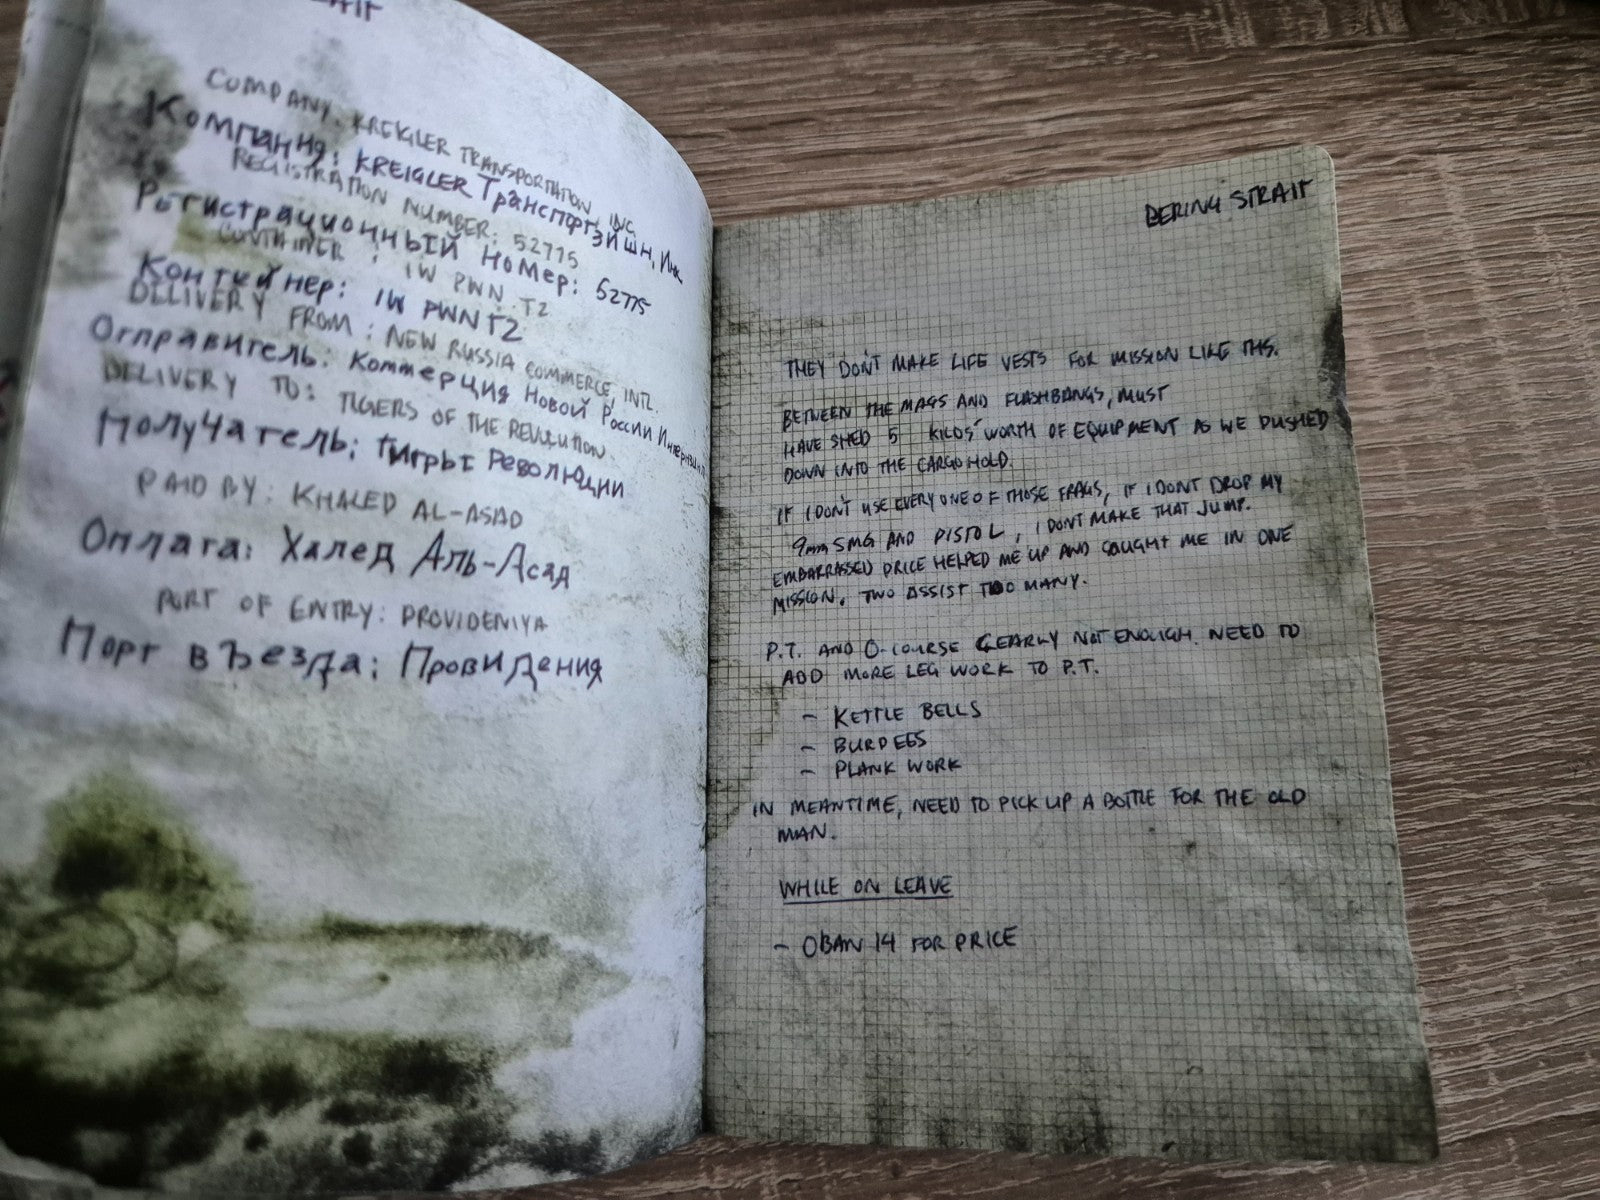 COMPANY: KREIGLER TRANSPORTATION, INC.
Компания: KREIGLER Транспортэйшн, Инк
REGISTRATION NUMBER: 52775
Регистрационный номер: 52775
CONTAINER: 1W PWN T2
Контейнер: 1W PWN T2
DELIVERY FROM: NEW RUSSIA COMMERCE, INTL.
Отправитель: Коммерция Новой России
DELIVERY TO: TIGERS OF THE REVOLUTION
Получатель: Тигры Революции
PAID BY: KHALED AL-ASAD
Оплата: Халед Аль-Асад
PORT OF ENTRY: PROVIDENIYA
Порт въезда: Провидения
BERING STRAIT
THEY DON'T MAKE LIFE VESTS FOR MISSION LIKE THIS.
BETWEEN THE MAGS AND FLASHBANGS, MUST
HAVE SHED 5 KILOS' WORTH OF EQUIPMENT AS WE PUSHED
DOWN INTO THE CARGO HOLD.
IF I DON'T USE EVERY ONE OF THOSE FRAGS, IF I DONT DROP MY
9mm SMG AND PISTOL, I DONT MAKE THAT JUMP.
EMBARRASSED PRICE HELPED ME UP AND CAUGHT ME IN ONE
MISSION. TWO ASSIST TOO MANY.
P.T. AND O-COURSE CLEARLY NOT ENOUGH. NEED TO
ADD MORE LEG WORK TO P.T.
- KETTLE BELLS
- BURPEES
- PLANK WORK
IN MEANTIME, NEED TO PICK UP A BOTTLE FOR THE OLD
MAN.
WHILE ON LEAVE
- OBAN 14 FOR PRICE